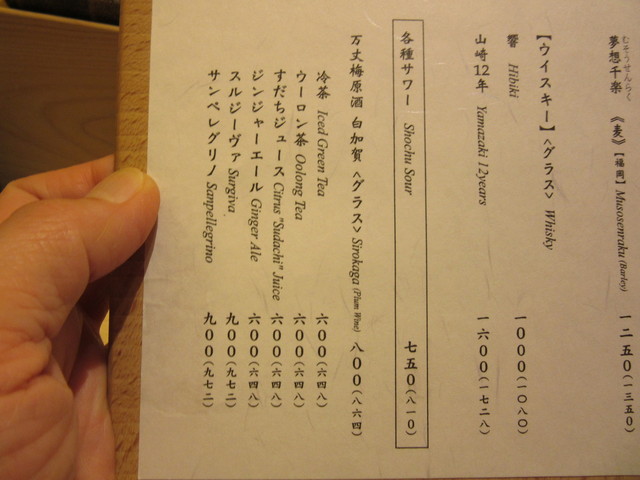 むそうせんらく
夢想千楽 《麦》【福岡】 Musosenraku (Barley) 一二五〇（一三五〇）
【ウイスキー】<グラス> Whisky
響 Hibiki 一〇〇〇（一〇八〇）
山崎12年 Yamazaki 12years 一六〇〇（一七二八）
各種サワー Shochu Sour 七五〇（八一〇）
万丈梅原酒 白加賀 <グラス> Sirokaga (Plum Wine) 八〇〇（八六四）
冷茶 Iced Green Tea 六〇〇（六四八）
ウーロン茶 Oolong Tea 六〇〇（六四八）
すだちジュース Citrus "Sudachi" Juice 六〇〇（六四八）
ジンジャーエール Ginger Ale 六〇〇（六四八）
スルジーヴァ Surgiva 九〇〇（九七二）
サンペレグリノ Sanpellegrino 九〇〇（九七二）